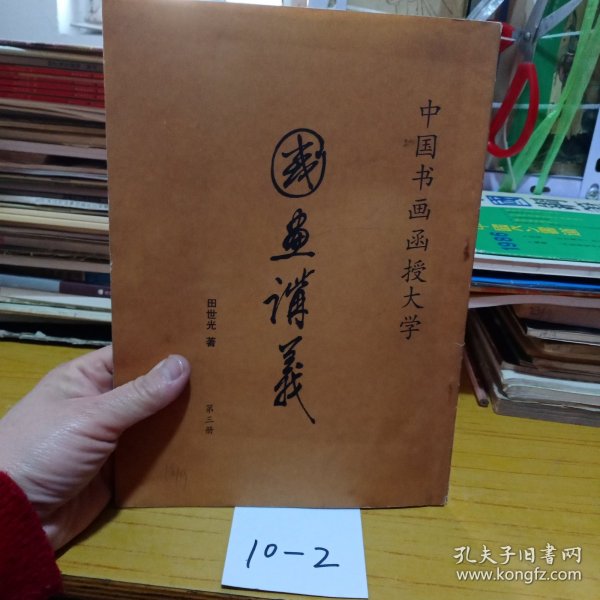 中国书画函授大学
國畫講義
田世光 著
第三册
10-2
孔夫子旧书网
www.kongfz.com